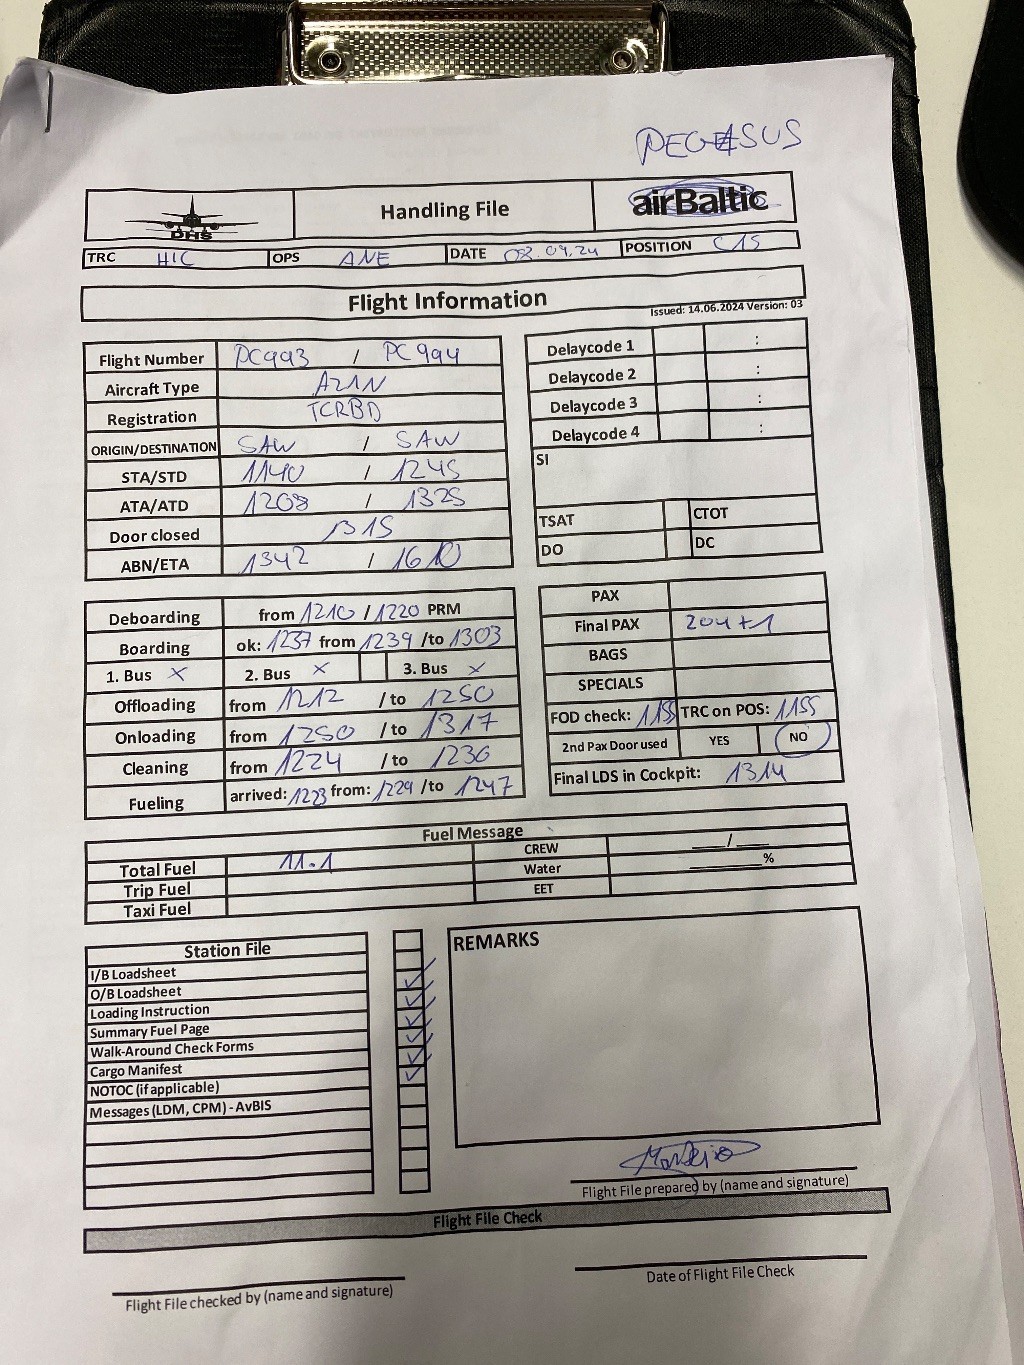 PEGASUS
DHS
Handling File
airBaltic
TRC HIC OPS ANE DATE 08.09.24 POSITION C15
Flight Information
Issued: 14.06.2024 Version: 03
Flight Number PC993 / PC994
Aircraft Type A21N
Registration TCRBD
ORIGIN/DESTINATION SAW / SAW
STA/STD 1140 / 1245
ATA/ATD 1208 / 1325
Door closed 1315
ABN/ETA 1342 / 1610
Delaycode 1 :
Delaycode 2 :
Delaycode 3 :
Delaycode 4 :
SI
TSAT CTOT
DO DC
Deboarding from 1210 / 1220 PRM
Boarding ok: 1237 from 1239 /to 1303
1. Bus x 2. Bus x 3. Bus x
Offloading from 1212 /to 1250
Onloading from 1250 /to 1317
Cleaning from 1224 /to 1236
Fueling arrived: 1223 from: 1229 /to 1247
PAX
Final PAX 204+1
BAGS
SPECIALS
FOD check: 1155 TRC on POS: 1155
2nd Pax Door used YES NO
Final LDS in Cockpit: 1314
Fuel Message
Total Fuel 11.1 CREW ___/___
Trip Fuel Water ______%
Taxi Fuel EET
Station File
I/B Loadsheet
O/B Loadsheet
Loading Instruction
Summary Fuel Page
Walk-Around Check Forms
Cargo Manifest
NOTOC (if applicable)
Messages (LDM, CPM) - AvBIS
REMARKS
Flight File prepared by (name and signature)
Flight File Check
Flight File checked by (name and signature)
Date of Flight File Check